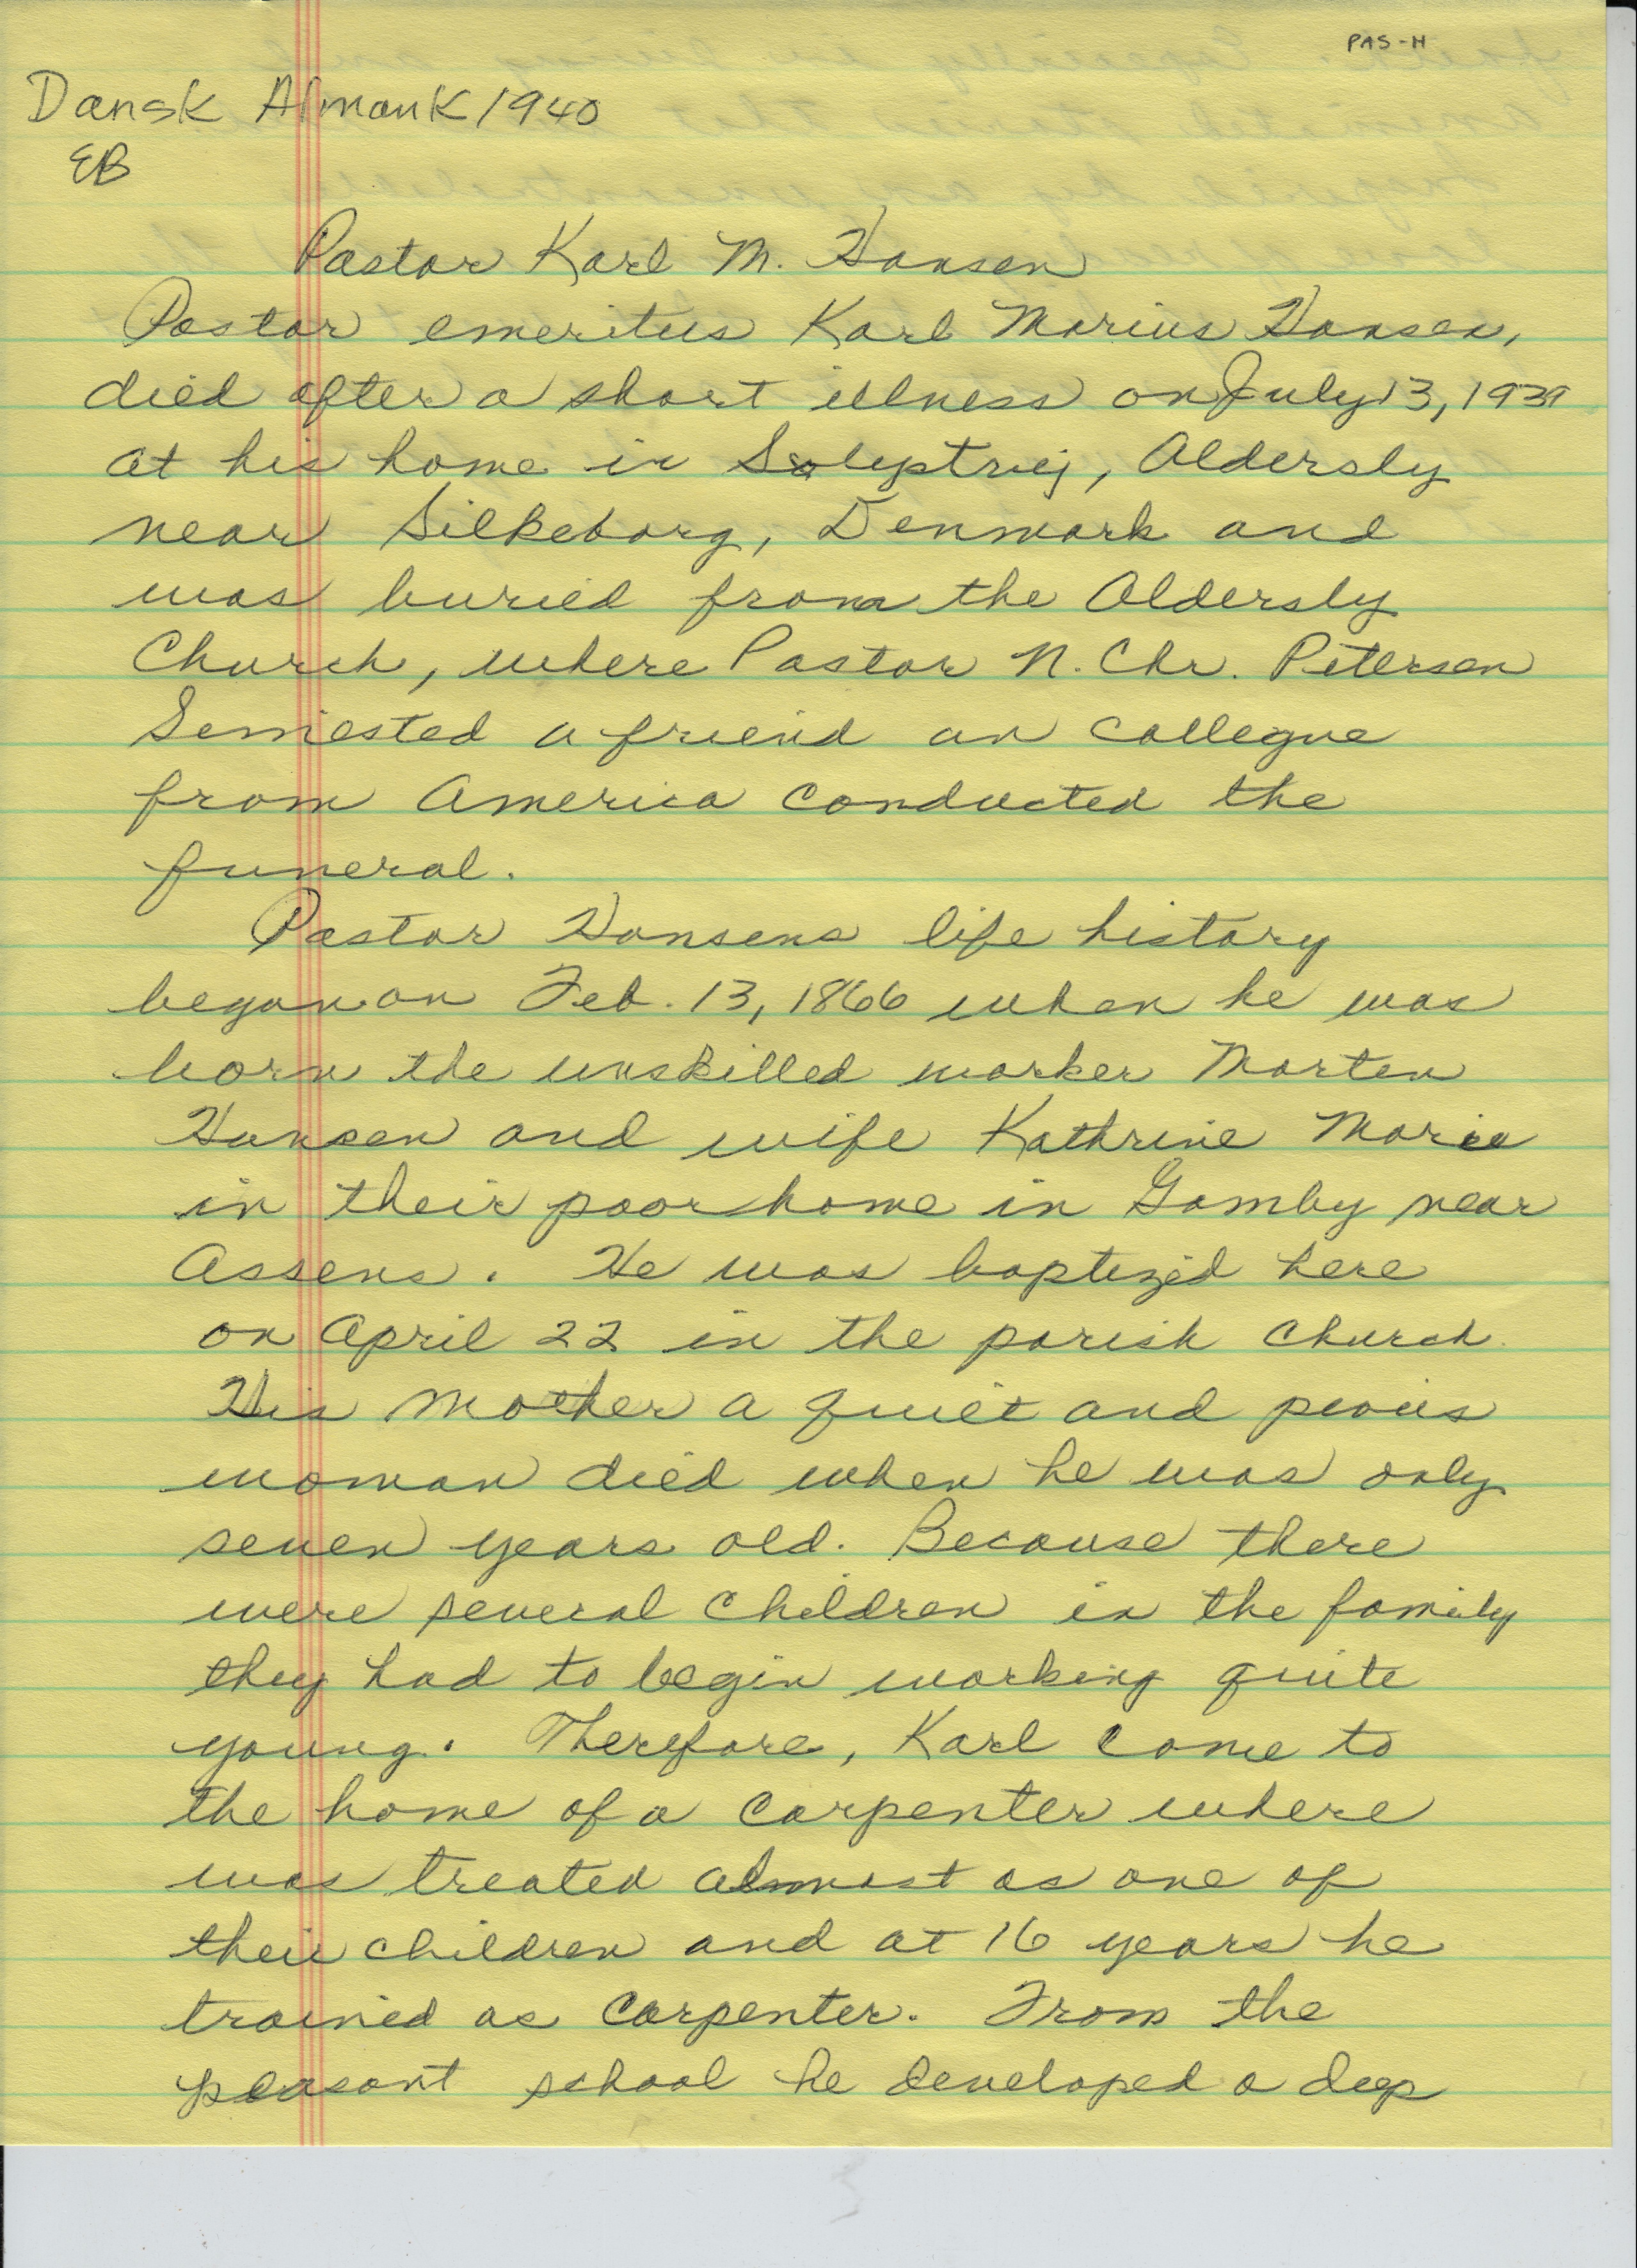 PAS-H
Dansk Almank 1940
EB
Pastor Karl M. Hansen
Pastor emeritus Karl Marius Hansen,
died after a short illness on July 13, 1939
at his home in Aldersly
near Silkeborg, Denmark and
was buried from the Aldersly
Church, where Pastor N. Chr. Petersen
Semested a friend an collegue
from America conducted the
funeral.
Pastor Hansens life history
began on Feb. 13, 1866 when he was
born the unskilled worker Morten
Hansen and wife Kathrine Marie
in their poor home in Gamby near
Assens. He was baptized here
on April 22 in the parish church.
His mother a quiet and pious
woman died when he was only
seven years old. Because there
were several children in the family
they had to begin working quite
young. Therefore, Karl came to
the home of a carpenter where
was treated almost as one of
their children and at 16 years he
trained as carpenter. From the
peasant school he developed a deep